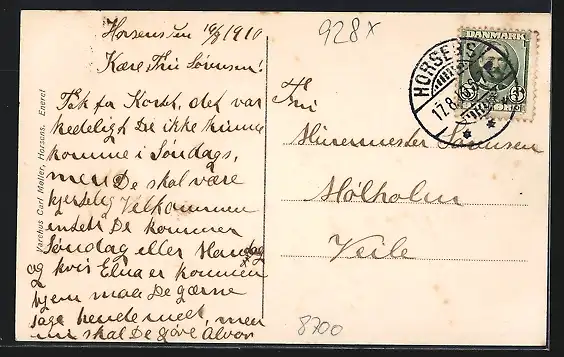 Horsens den 16/8 1910
Kære Fru Sørensen!
Tak for Kortet, det var
kedeligt De ikke kunne
komme i Søndags,
men De skal være
hjertelig Velkommen
enten De kommer
Søndag eller Mandag
og hvis Elna er kommen
hjem maa De gærne
tage hende med, men
nu skal De gøre Alvor
Varehus Carl Møller, Horsens. Eneret
928 x
DANMARK
HORSENS
17.8.10
Fru
Murermester Sørensen
Mølholm
Vejle
8700